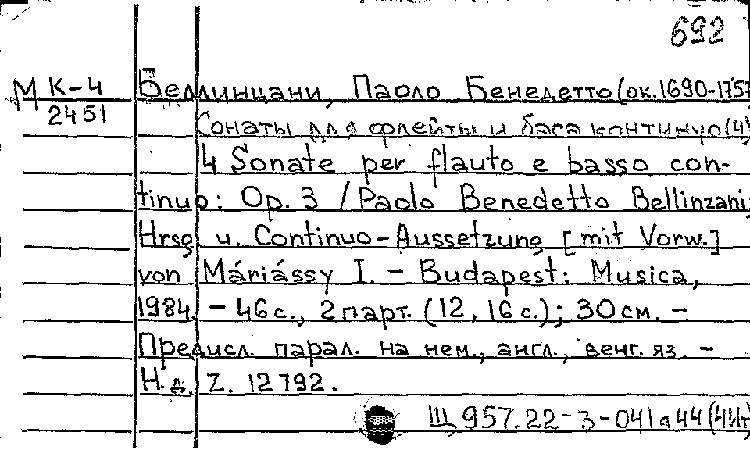 692
М К-4 Беллинцани, Паоло Бенедетто (ок.1690-1757
2451
Сонаты для флейты и баса континуо (4)
4 Sonate per flauto e basso con-
tinuo: Op. 3 / Paolo Benedetto Bellinzani,
Hrsg. u. Continuo-Aussetzung [mit Vorw.]
von Máriássy I. - Budapest: Musica,
1984. - 46 с., 2 парт. (12, 16 с.); 30 см. -
Предисл. парал. на нем., англ., венг. яз. -
Н. д. Z. 12792.
Щ 957.22-3-041 а 44